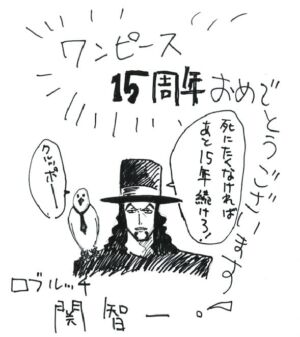 ワンピース
15周年おめでとうございます
死にたくなければ
あと15年続けろ！
クルッポー
ロブルッチ
関智一。